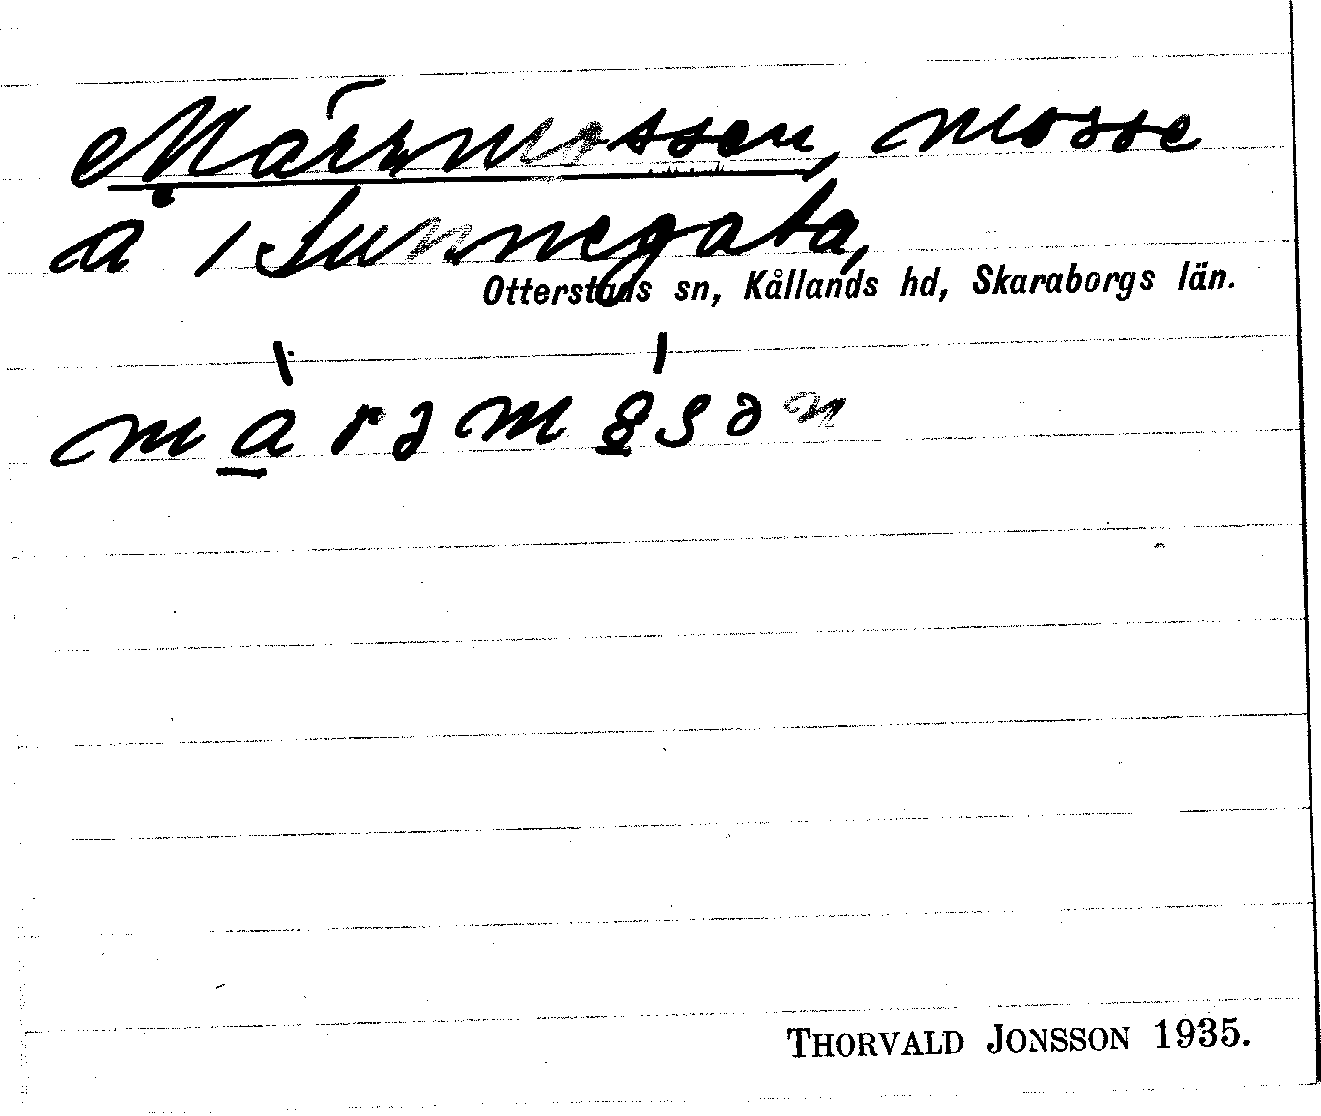 Märrmossen, mosse
å /Sunnegata,
Otterstads sn, Kållands hd, Skaraborgs län.
THORVALD JONSSON 1935.